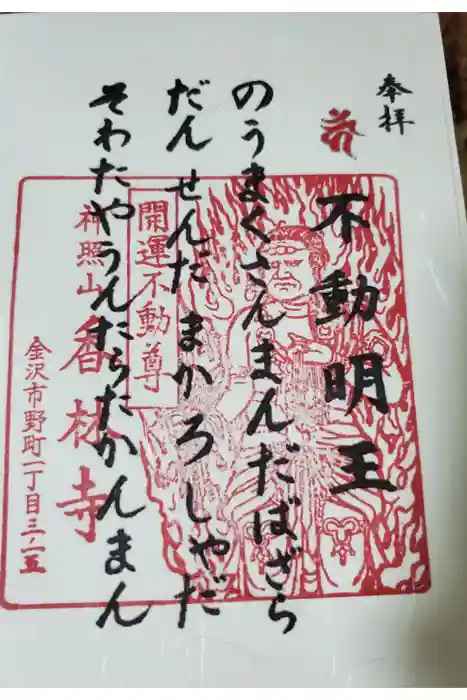 奉拝
不動明王
のうまくさんまんだばざら
だん せんだ まかろしゃだ
そわたやうんたらたかんまん
開運不動尊
神照山 香林寺
金沢市野町一丁目三-一五